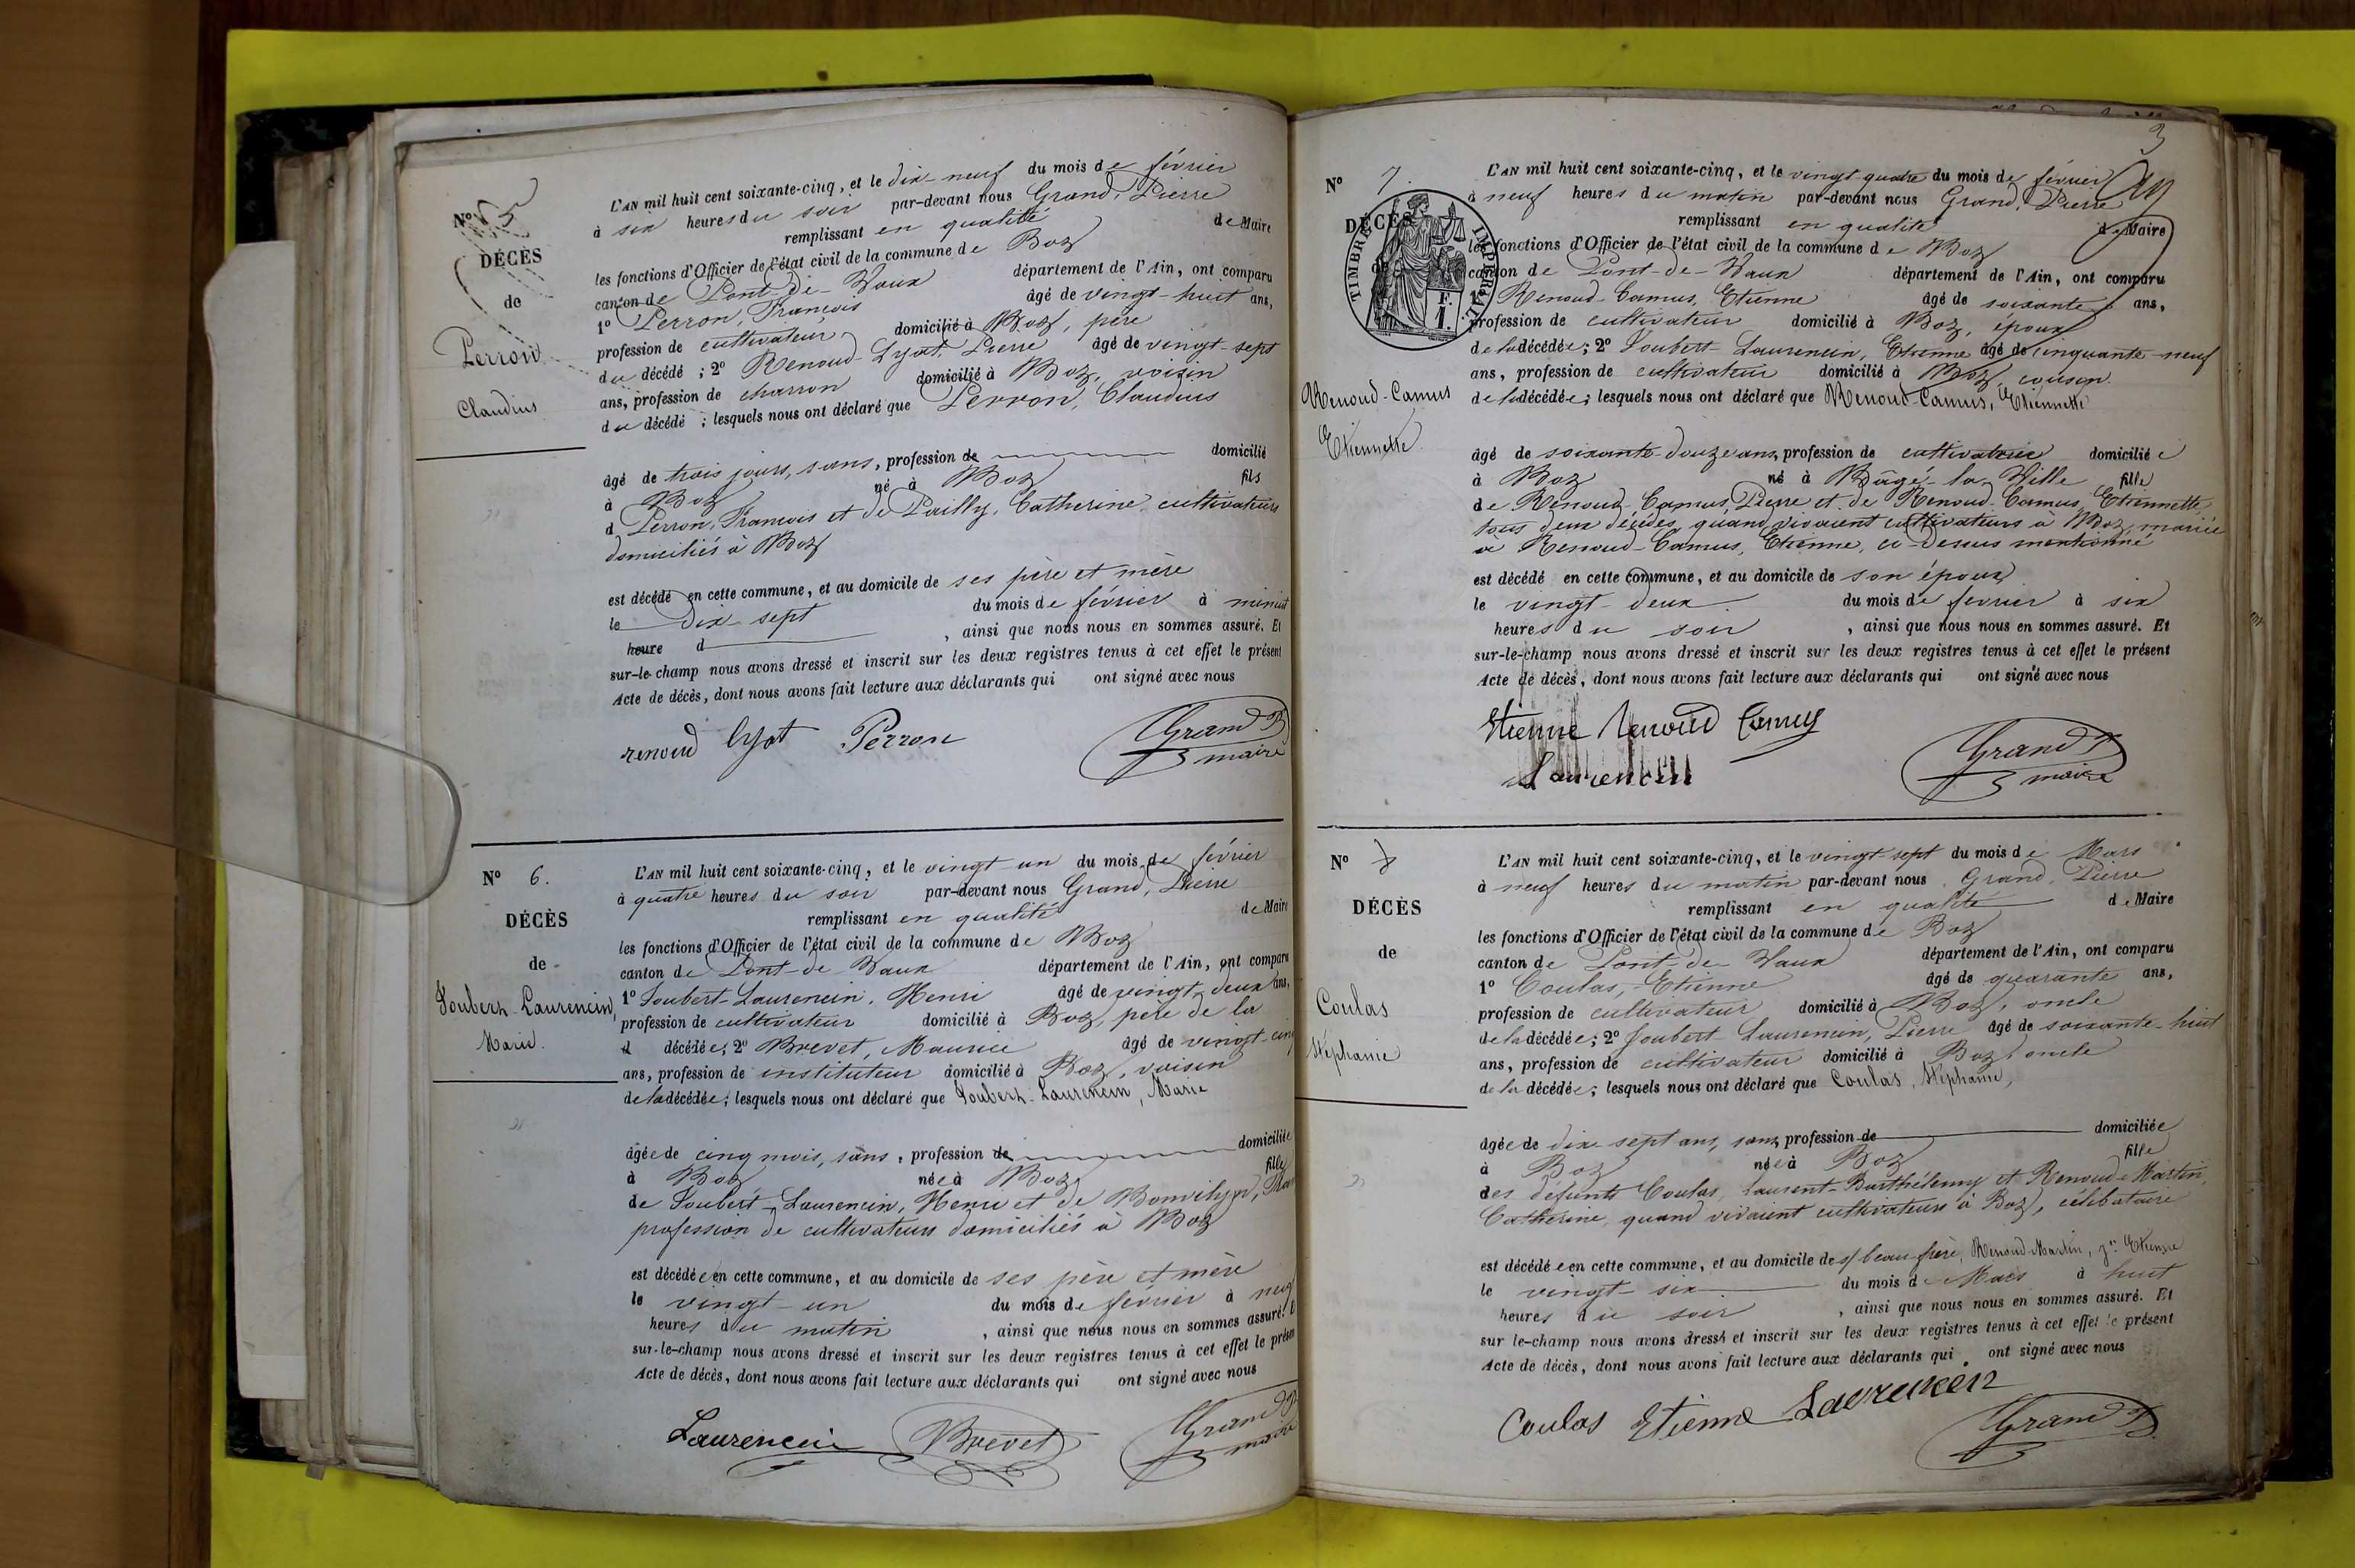 N° 5
DÉCÈS
de
Perron
Claudius
L'AN mil huit cent soixante-cinq, et le dix-neuf du mois de février
à six heures du soir par-devant nous Grand, Pierre
remplissant en qualité de Maire
les fonctions d'Officier de l'état civil de la commune de Boz
canton de Pont-de-Vaux département de l'Ain, ont comparu
1° Perron, François âgé de vingt-huit ans,
profession de cultivateur domicilié à Boz, père
du décédé ; 2° Renoud-Lyat, Pierre âgé de vingt-sept
ans, profession de charron domicilié à Boz, voisin
du décédé ; lesquels nous ont déclaré que Perron, Claudius
âgé de trois jours, sans, profession de domicilié
à Boz né à Boz fils
d Perron, François et de Pailly, Catherine, cultivateurs
domiciliés à Boz
est décédé en cette commune, et au domicile de ses père et mère
le dix-sept du mois de février à minuit
heure d , ainsi que nous nous en sommes assuré. Et
sur-le-champ nous avons dressé et inscrit sur les deux registres tenus à cet effet le présent
Acte de décès, dont nous avons fait lecture aux déclarants qui ont signé avec nous
renoud lyat Perron Grand P
maire
N° 6.
DÉCÈS
de
Joubert-Laurencin,
Marie.
L'AN mil huit cent soixante-cinq, et le vingt-un du mois de février
à quatre heures du soir par-devant nous Grand, Pierre
remplissant en qualité de Maire
les fonctions d'Officier de l'état civil de la commune de Boz
canton de Pont-de-Vaux département de l'Ain, ont comparu
1° Joubert-Laurencin, Henri âgé de vingt-deux ans,
profession de cultivateur domicilié à Boz, père de la
d décédée; 2° Brevet, Maurice âgé de vingt-cinq
ans, profession de instituteur domicilié à Boz, voisin
de la décédée; lesquels nous ont déclaré que Joubert-Laurencin, Marie
âgée de cinq mois, sans, profession de domiciliée
à Boz née à Boz fille
de Joubert-Laurencin, Henri et de
profession de cultivateurs domiciliés à Boz
est décédée en cette commune, et au domicile de ses père et mère
le vingt-un du mois de février à neuf
heures du matin , ainsi que nous nous en sommes assuré. E
sur-le-champ nous avons dressé et inscrit sur les deux registres tenus à cet effet le présen
Acte de décès, dont nous avons fait lecture aux déclarants qui ont signé avec nous
Laurencin Brevet Grand P
maire
3
N° 7.
DÉCÈS
de
TIMBRE IMPÉRIAL
Renoud-Camus
Etiennette
L'AN mil huit cent soixante-cinq, et le vingt-quatre du mois de février
à neuf heures du matin par-devant nous Grand, Pierre
remplissant en qualité de Maire
les fonctions d'Officier de l'état civil de la commune de Boz
canton de Pont-de-Vaux département de l'Ain, ont comparu
1° Renoud-Camus, Etienne âgé de soixante ans,
profession de cultivateur domicilié à Boz, époux
de la décédée; 2° Joubert-Laurencin, Etienne âgé de cinquante-neuf
ans, profession de cultivateur domicilié à Boz, cousin
de la décédée; lesquels nous ont déclaré que Renoud-Camus, Etiennette
âgé de soixante-douze ans, profession de cultivatrice domiciliée
à Boz né à Bâgé-la-Ville fille
de Renoud-Camus, Pierre et de Renoud-Camus, Etiennette,
tous deux décédés, quand vivaient cultivateurs à Boz, mariée
à Renoud-Camus, Etienne, ci-dessus mentionné
est décédé en cette commune, et au domicile de son époux
le vingt-deux. du mois de février à six
heures du soir , ainsi que nous nous en sommes assuré. Et
sur-le-champ nous avons dressé et inscrit sur les deux registres tenus à cet effet le présent
Acte de décès, dont nous avons fait lecture aux déclarants qui ont signé avec nous
Etienne Renoud Camus
Laurencin Grand P
maire
N° 8
DÉCÈS
de
Coulas
Stéphanie
L'AN mil huit cent soixante-cinq, et le vingt-sept du mois de Mars
à neuf heures du matin par-devant nous Grand, Pierre
remplissant en qualité de Maire
les fonctions d'Officier de l'état civil de la commune de Boz
canton de Pont-de-Vaux département de l'Ain, ont comparu
1° Coulas, Etienne âgé de quarante ans,
profession de cultivateur domicilié à Boz, oncle
de la décédée; 2° Joubert-Laurencin, Pierre âgé de soixante-huit
ans, profession de cultivateur domicilié à Boz, oncle
de la décédée; lesquels nous ont déclaré que Coulas, Stéphanie,
âgée de dix-sept ans, sans, profession de domiciliée
à Boz née à Boz fille
des défunts Coulas, Laurent-Barthélemy et Renoud-Martin,
Catherine, quand vivaient cultivateurs à Boz, célibataire
est décédée en cette commune, et au domicile de s/ beau-frère, Renoud-Martin, Etienne
le vingt-six du mois de Mars à huit
heures du soir , ainsi que nous nous en sommes assuré. Et
sur le-champ nous avons dressé et inscrit sur les deux registres tenus à cet effet le présent
Acte de décès, dont nous avons fait lecture aux déclarants qui ont signé avec nous
Coulas Etienne Laurencin
Grand P